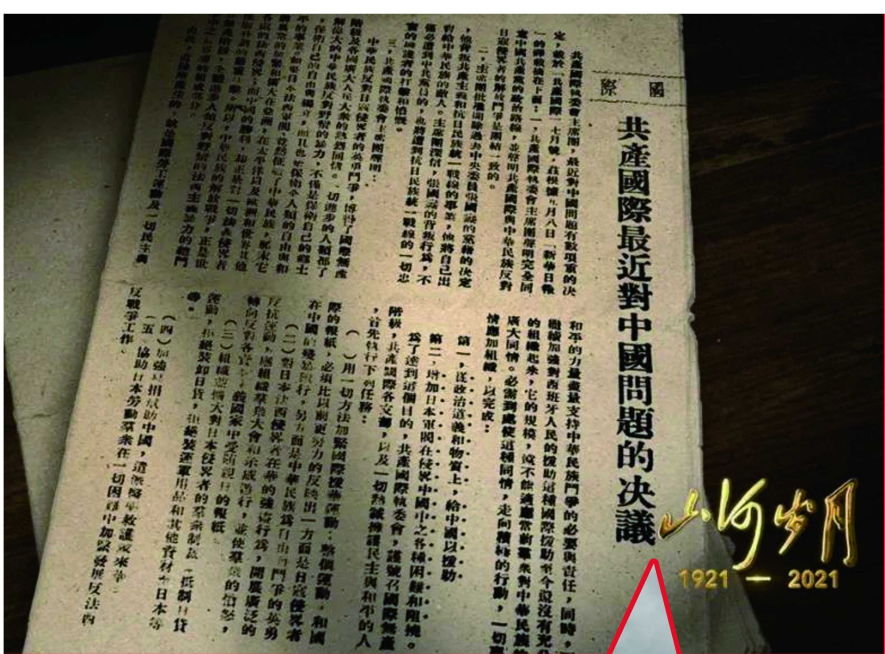 國際
共產國際最近對中國問題的決議
共產國際執委會主席團,最近對中國問題有數項重的決
定,載於「共產國際」七月號,茲根據九月八日「新華日報
的譯載摘在上面:一,共產國際執委會主席團聲明完全同
意中國共產黨的政治路綫,並聲明共產國際與中華民族反對
日寇侵略者的解放鬥爭是團結一致的。
二,主席團批准開除過去中央委員張國燾的黨籍的決定
他背叛共產主義和抗日民族統一戰線的事業,他將自己出
賣給中華民族的敵人。主席團深信,張國燾的背叛行為,不
僅必遭到中共黨員的,也將遭到抗日民族統一戰線的一切忠
實的擁護者的打擊和憤恨。
三,共產國際執委會主席團聲明:
中華民族反對日寇侵略者的英勇鬥爭,博得了國際無產
階級及各國廣大人民大眾的熱烈同情。一切進步的人類都了
解偉大的中華民族反對野蠻的暴力,不僅是保衛自己的鄉土
,保衛自己的自由與獨立,而且也是保衛全人類的自由與和
平的事業。
中華民族的解放戰爭,正是世
就是國際勞工運動及一切民主與
和平的力量盡量支持中華民族鬥爭的必要與責任,同時,
繼續加強對西班牙人民的援助這種國際援助至今還沒有充分
的組織起來,它的規模,還不能適應當前羣衆對中華民族的
廣大同情。必需到處使這種同情,走向積極的行動,一切
情應加組織,以完成:
第一,從政治道義和物質上,給中國以援助
第二,增加日本軍閥在侵畧中國中之各種困難和阻撓。
爲了達到這個目的,共產國際執委會,謹號召國際無產
階級,共產國際各支部,以及一切熱誠擁護民主與和平的人
,首先執行下列任務:
(一)用一切方法加緊國際援華運動,整個運動,和國
際的報紙,必須比以前更努力的反映出一方面是日寇侵畧者
在中國的殘暴獸行,另一方面是中華民族爲自由而鬥爭的英勇
(二)對日本法西侵畧者在華的強盜行爲,開展廣泛的
反抗運動,應組織羣衆大會和示威遊行,並使羣衆的憤怒,
轉向反對各資本主義國家中受賄親日的報紙
(三)組織並擴大對日本侵畧者的羣衆制裁 抵制日貨
運動,拒絕裝卸日貨,拒絕裝運軍用品和其他資材 日本等
等。
(四)加強 捐 助中國,遣 救護隊來華
(五)協助日本勞動羣衆在一切困難中加緊發展反法西
反戰爭工作。
山河岁月
1921 — 2021